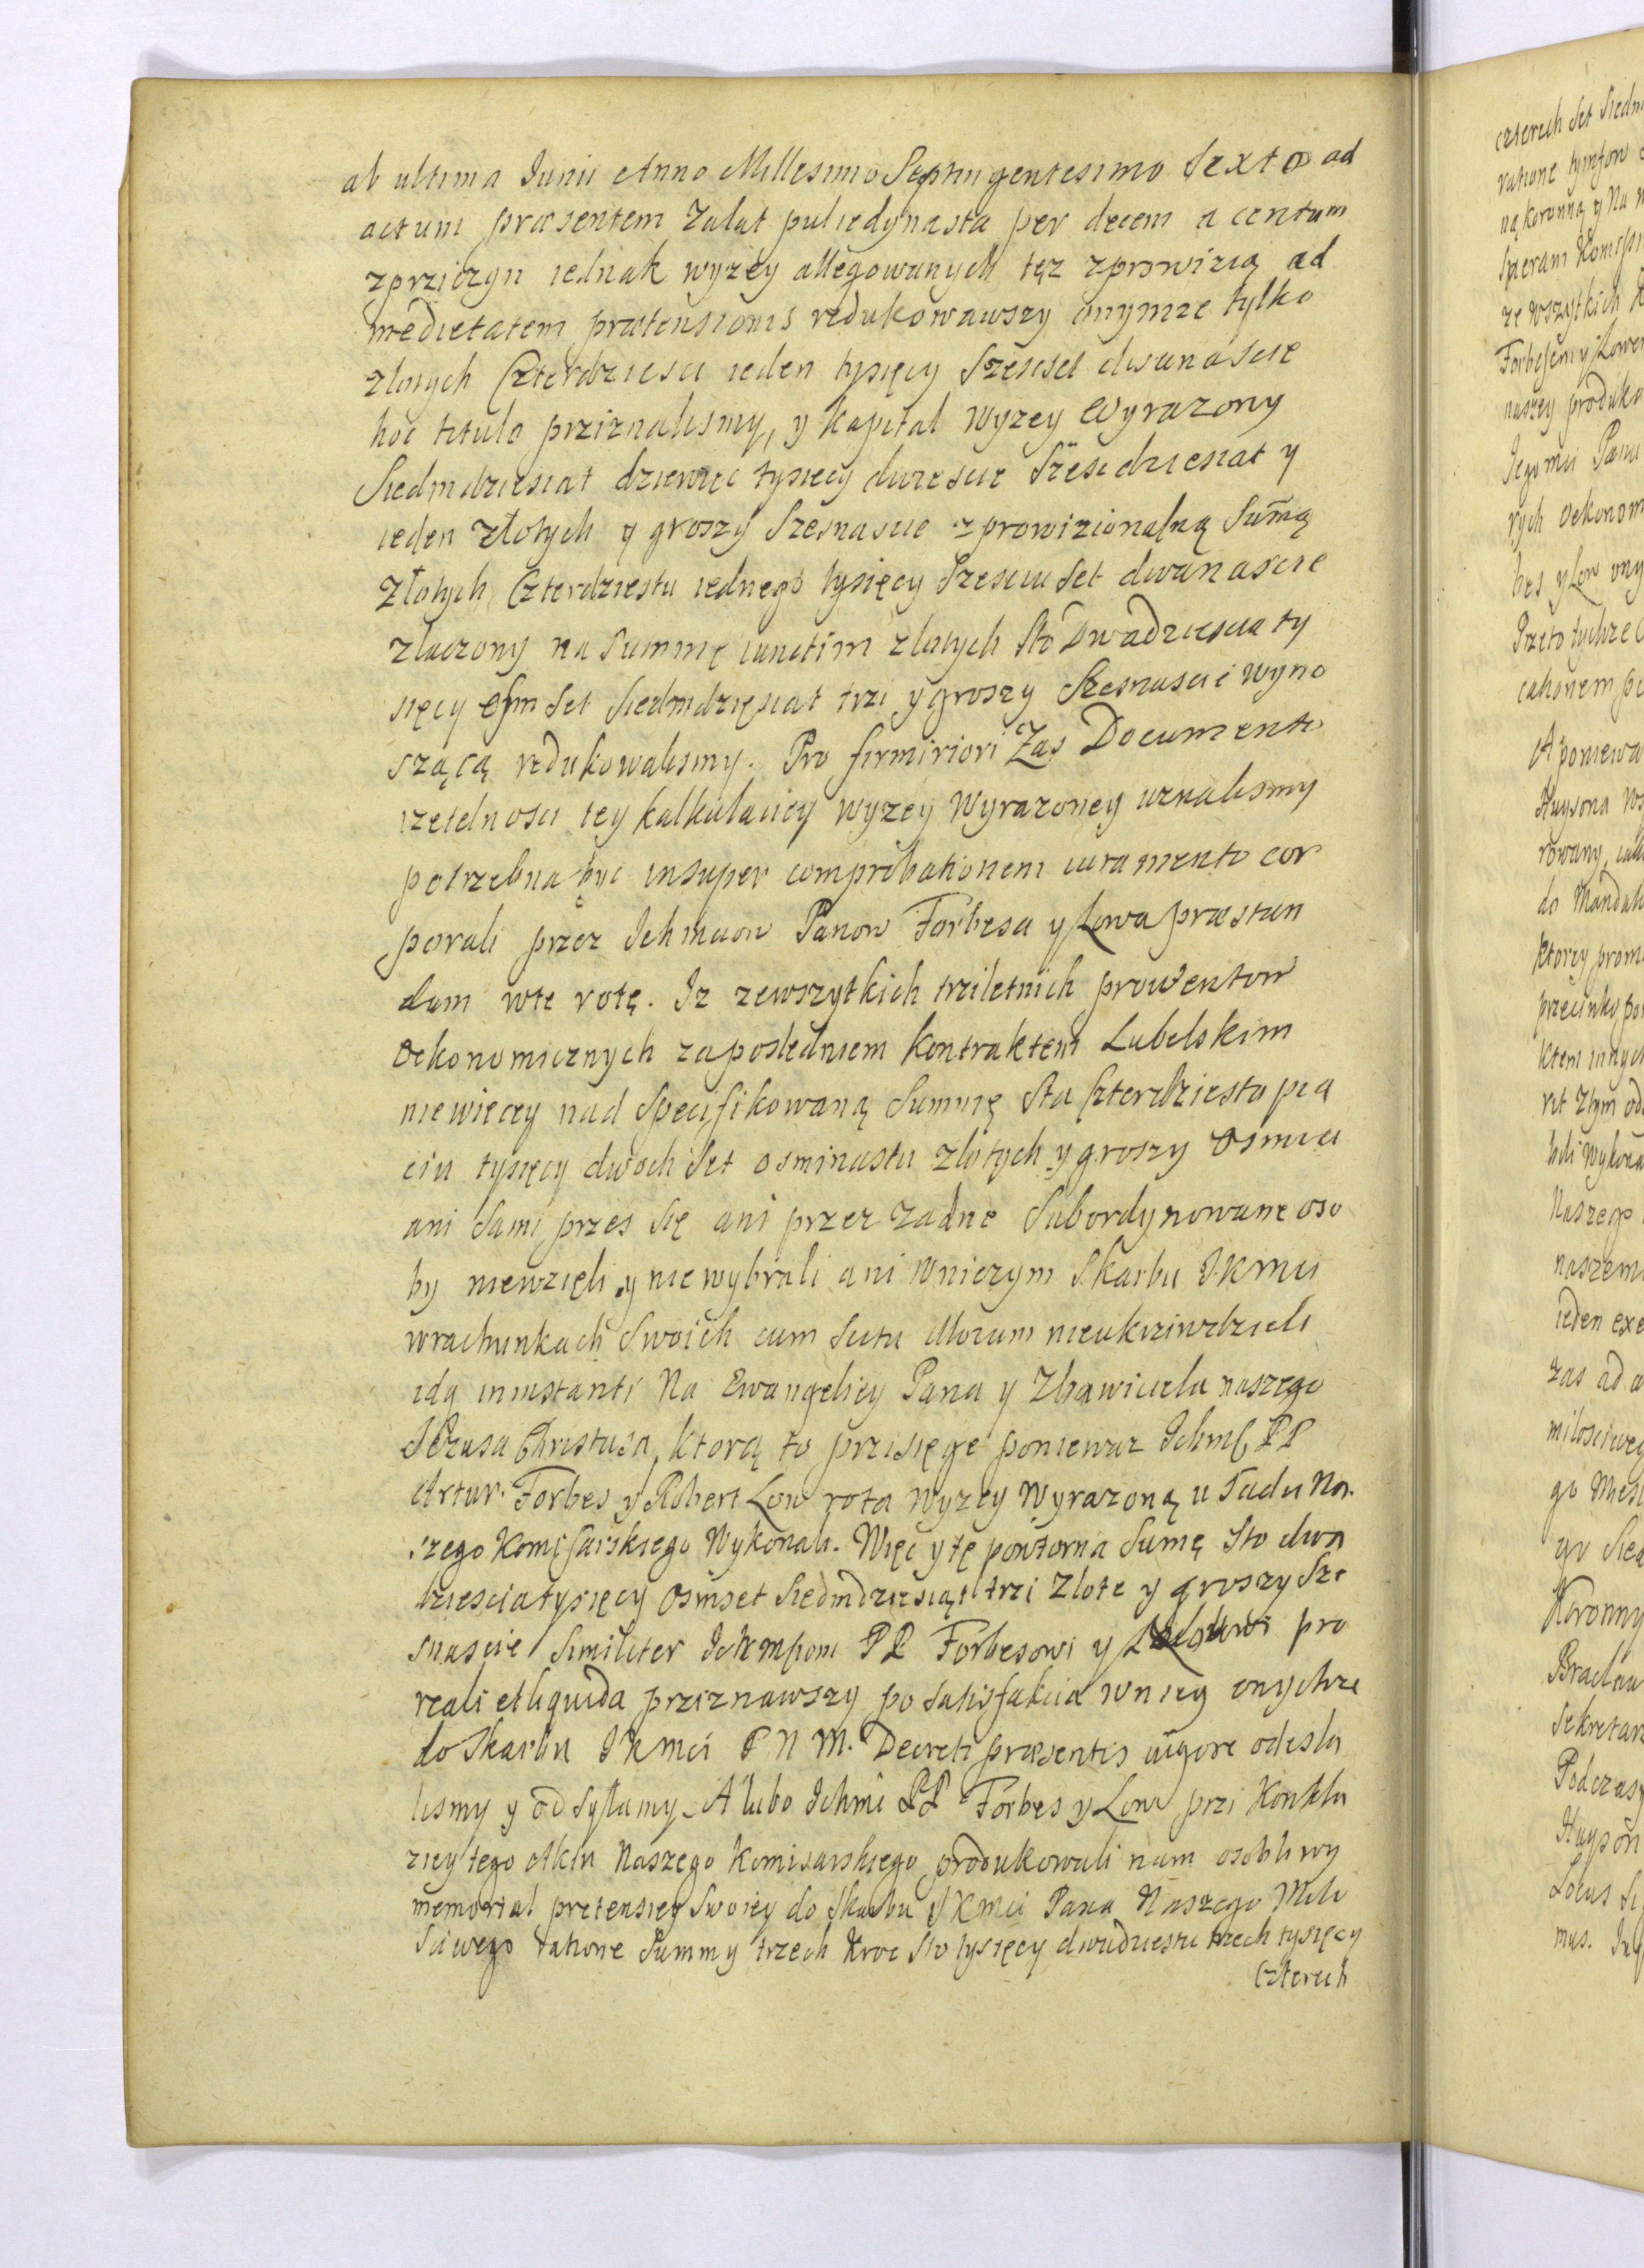 ab ultima Junii Anno Millesimo Septingentesimo Sexto ad
actum præsentem Zalat pultedynasta per decem a centum
zprziczyn iednak wyżey allegowanych tęz zprowizią ad
medietatem prætensionis redukowawszy onymze tylko
złotych Czterdziesci ieden tysięcy Szescset dwanascie
hoc titulo prziznalismy, y kapitał wyzey Wyrazony
Siedmdziesiat dziewięc tysięcy dwiescie Szescdziesiat y
ieden złotych y groszy Szesnascie z prowizionalną Sumą
Złotych Czterdziestu iednego tysięcy Szesciu Set dwanascie
złaczony na Summę iunctim złotych Sto Dwadziescia ty
sięcy osm Set Siedmdzięsiat trzi y groszy Szesnascie wyno
szącą redukowalismy. Pro firmiriori Zas Documento
rzetelnosci tey kalkulaciey wyzey Wyrazoney uznalismy
potrzebna byc insuper comprobationem iuramento cor
porali przez Ichmciow Panow Forbesa y Lowa præstan
dam wte rotę. Iz zewszytkich trziletnich prowentow
Oekonomicznych zaposledniem kontraktem Lubelskim
niewięcey nad Specifikowaną Summę Sta Czterdziestu pią
ciu tysięcy dwoch Set osminastu złotych y groszy Osmiu
ani Sami przes się ani przez zadne Subordynowane oso
by niewzięli y nie wybrali ani wniczym Skarbu JKMci
wrachunkach Swoich cum Scitu illorum nieukrziwdzieli
idq in instanti Na Ewangeliey Pana y Zbawiciela naszego
JEzusa Christusa, ktorą to przisięge poniewaz Ichmć PP
Artur Forbes y Robert Low rota wyzey Wyrazoną u Sadu Na
szego Komissarskiego Wykonali. Więc y tę powtorna Sumę Sto dwa
dziescia tysięcy Osmset Siedmdziesiąt trzi Złote y groszy Sze
snascie Similiter Ichmsciom PP Forbesowi y Lowowi pro
reali et liquida prziznawszy po Satisfakcia wniey onychze
do Skarbu JKMci P N M. Decreti præsentis vigore odesla
lismy y odsyłamy. A lubo Ichmć PP Forbes y Low przi Konklu
ziey tego Aktu Naszego Komisarskiego produkowali nam osobliwy
memoriał pretensiey Swoiey do Skarbu JKMci Pana Naszego Miło
Sciwego ratione Summy trzech Kroc Sto tysięcy dwudziestu trzech tysięcy
Czterech